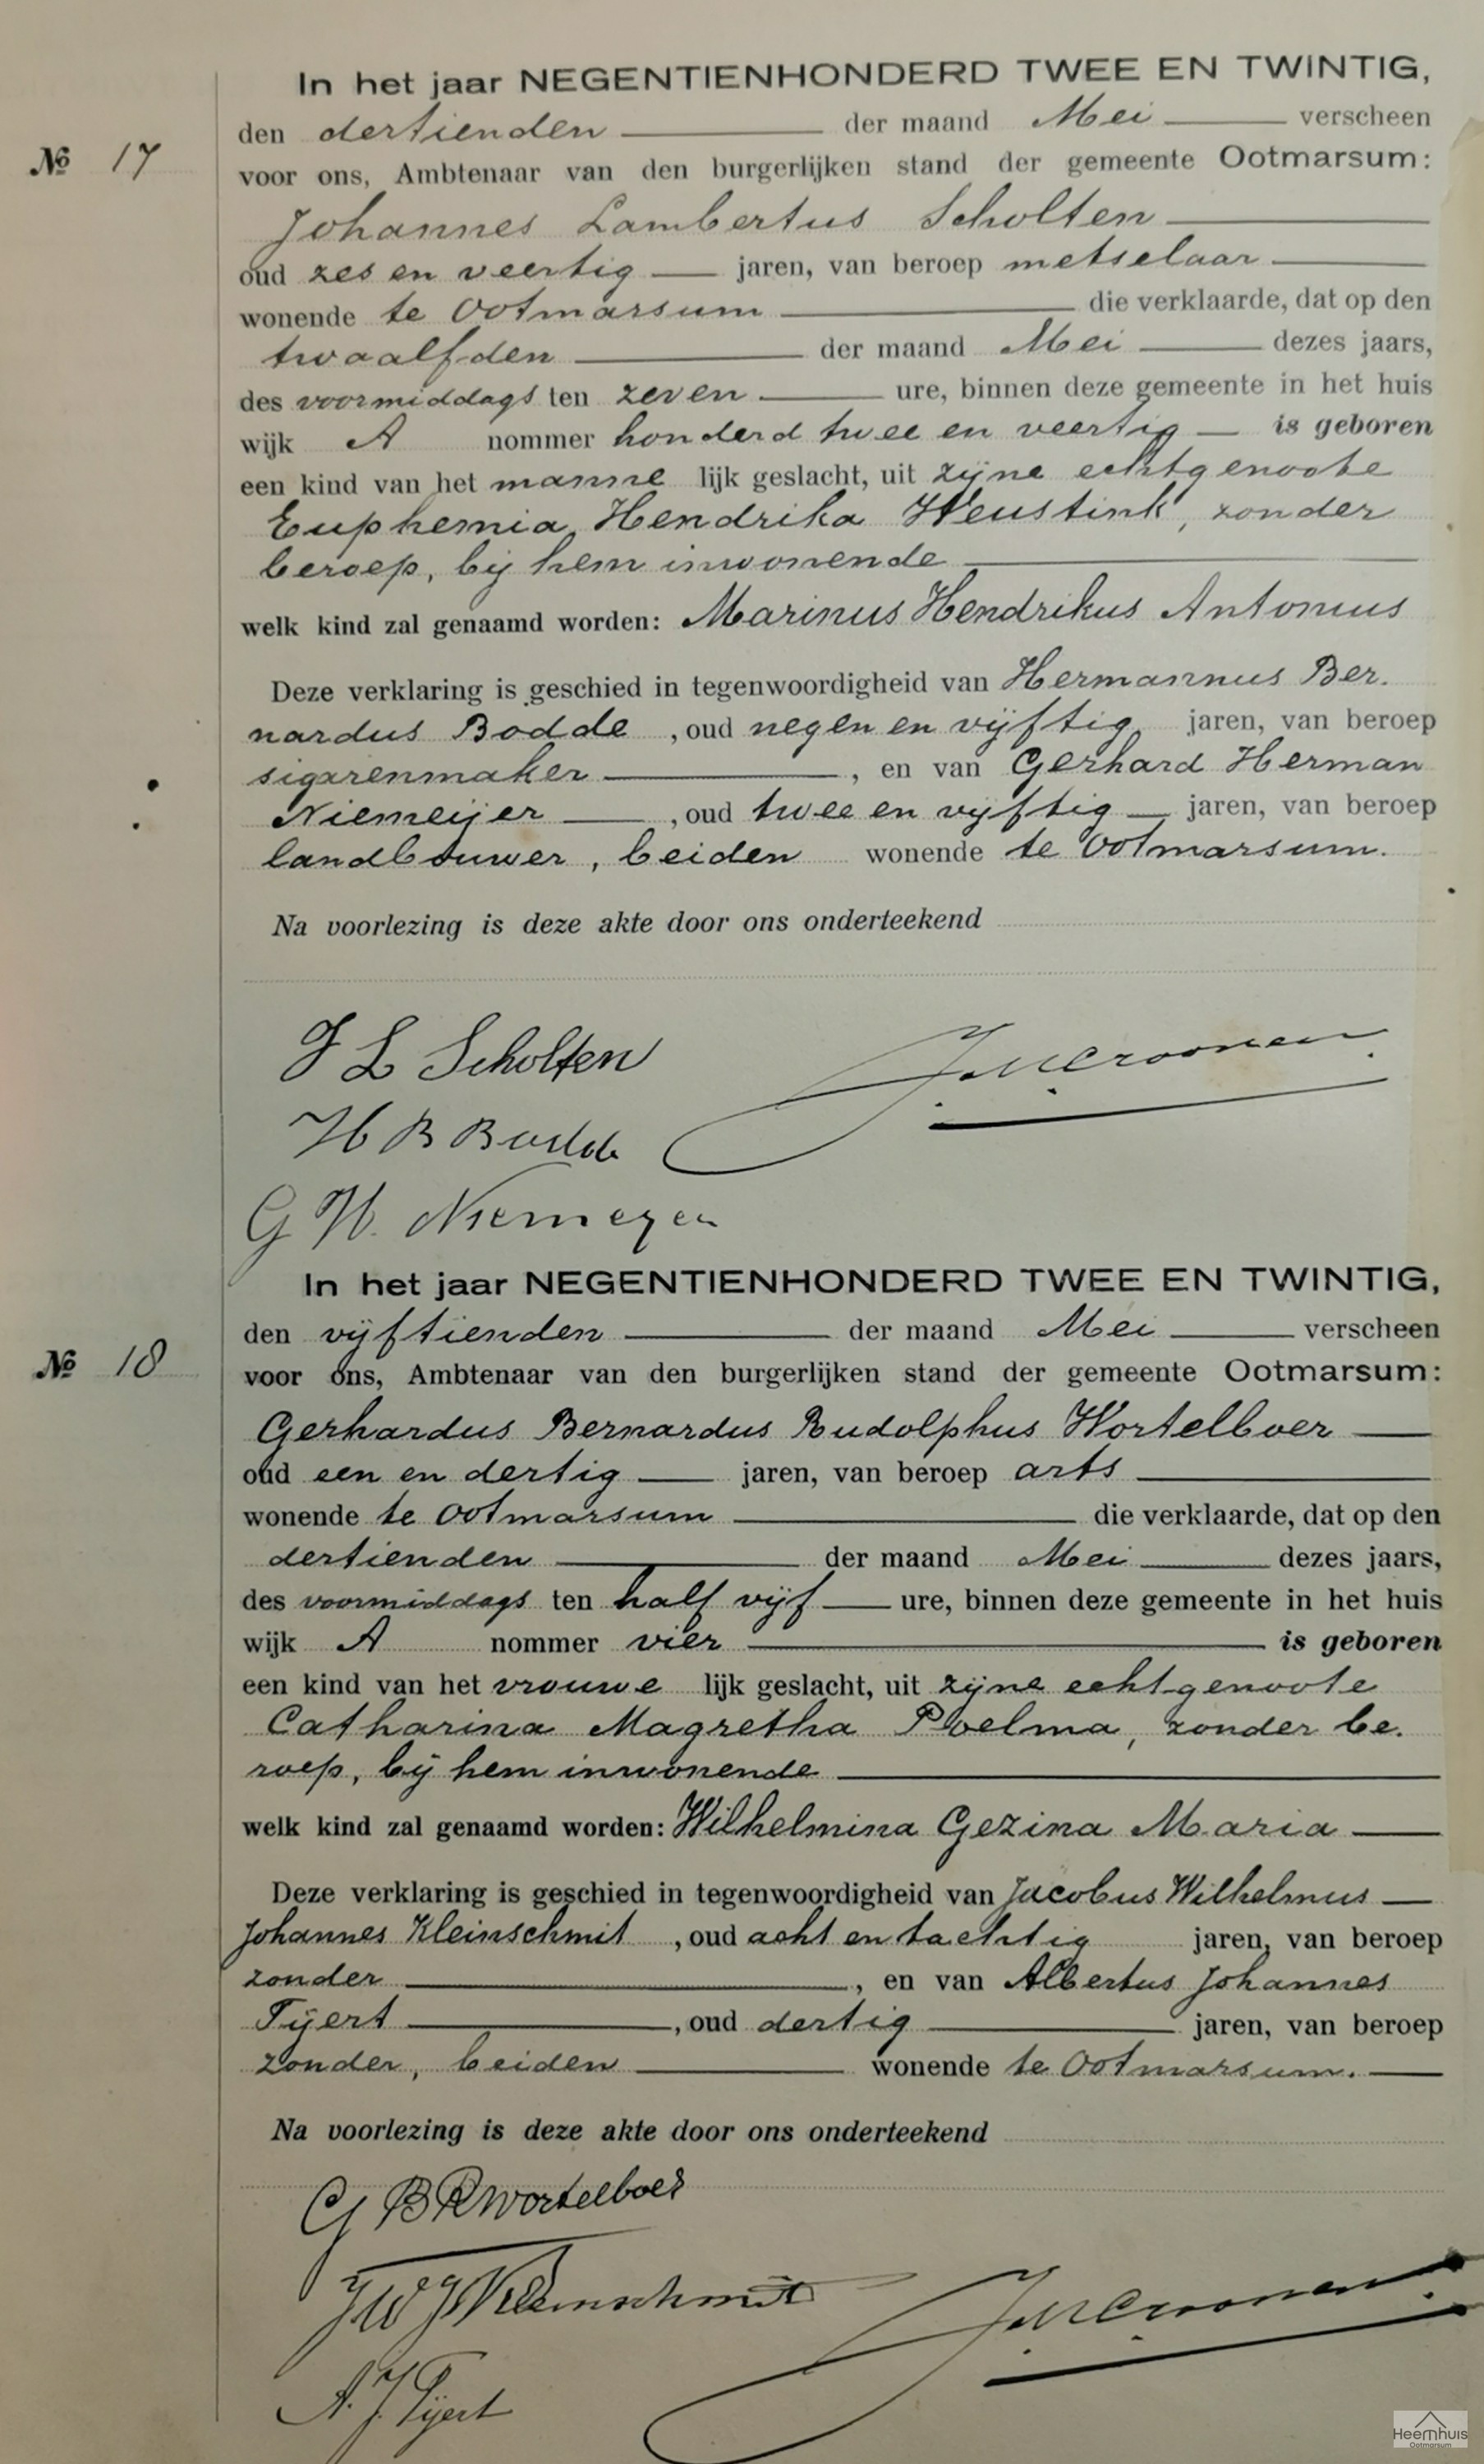 In het jaar NEGENTIENHONDERD TWEE EN TWINTIG,
den dertienden der maand Mei verscheen
№ 17
voor ons, Ambtenaar van den burgerlijken stand der gemeente Ootmarsum:
Johannes Lambertus Scholten
oud zes en veertig jaren, van beroep metselaar
wonende te Ootmarsum die verklaarde, dat op den
twaalfden der maand Mei dezes jaars,
des voormiddags ten zeven ure, binnen deze gemeente in het huis
wijk A nommer honderd twee en veertig is geboren
een kind van het manne lijk geslacht, uit zijne echtgenoote
Euphemia Hendrika Weustink, zonder
beroep, bij hem inwonende
welk kind zal genaamd worden: Marinus Hendrikus Antonius
Deze verklaring is geschied in tegenwoordigheid van Hermannus Ber-
nardus Bodde, oud negen en vijftig jaren, van beroep
sigarenmaker, en van Gerhard Herman
Niemeijer, oud twee en vijftig jaren, van beroep
landbouwer, beiden wonende te Ootmarsum.
Na voorlezing is deze akte door ons onderteekend
J L Scholten
H B Bodde
G H. Niemeyer
In het jaar NEGENTIENHONDERD TWEE EN TWINTIG,
den vijftienden der maand Mei verscheen
№ 18
voor ons, Ambtenaar van den burgerlijken stand der gemeente Ootmarsum:
Gerhardus Bernardus Rudolphus Wortelboer
oud een en dertig jaren, van beroep arts
wonende te Ootmarsum die verklaarde, dat op den
dertienden der maand Mei dezes jaars,
des voormiddags ten half vijf ure, binnen deze gemeente in het huis
wijk A nommer vier is geboren
een kind van het vrouwe lijk geslacht, uit zijne echtgenoote
Catharina Magretha Poelma, zonder be-
roep, bij hem inwonende
welk kind zal genaamd worden: Wilhelmina Gezina Maria
Deze verklaring is geschied in tegenwoordigheid van Jacobus Wilhelmus
Johannes Kleinschmit, oud acht en tachtig jaren, van beroep
zonder, en van Albertus Johannes
Tijert, oud dertig jaren, van beroep
zonder, beiden wonende te Ootmarsum.
Na voorlezing is deze akte door ons onderteekend
G B R Wortelboer
J W J Kleinschmit
A. J. Tijert
Heemhuis
Ootmarsum